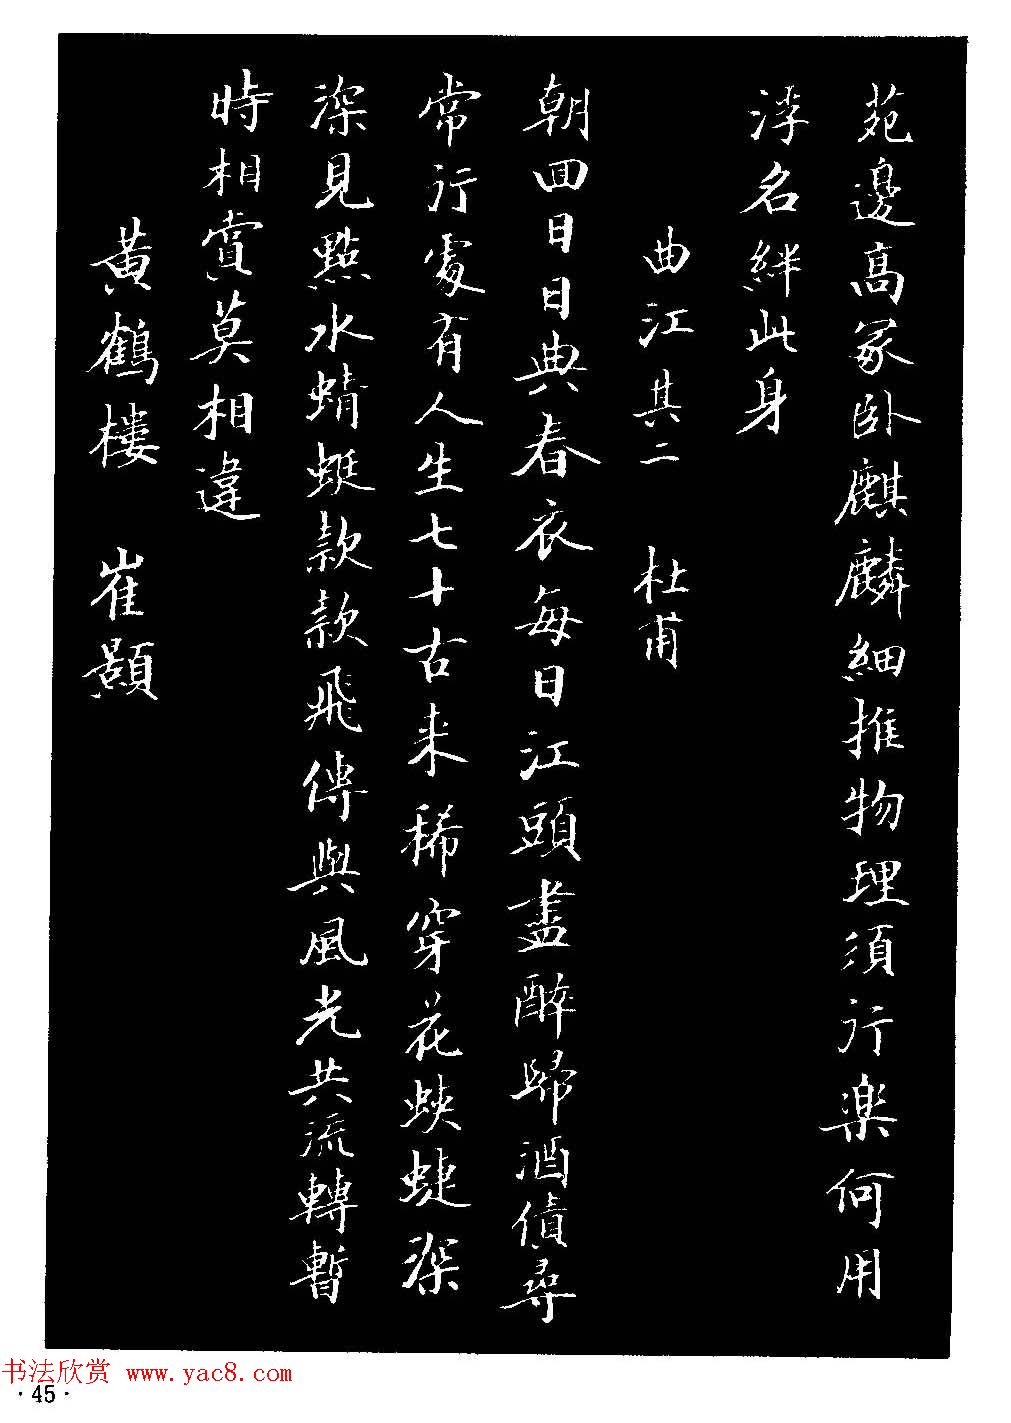 苑邊高冢卧麒麟細推物理須行樂何用
浮名絆此身
曲江其二 杜甫
朝回日日典春衣每日江頭盡醉歸酒債尋
常行處有人生七十古来稀穿花蛺蜨深
深見點水蜻蜓款款飛傳與風光共流轉暫
時相賞莫相違
黃鶴樓 崔顥
书法欣赏 www.yac8.com
·45·